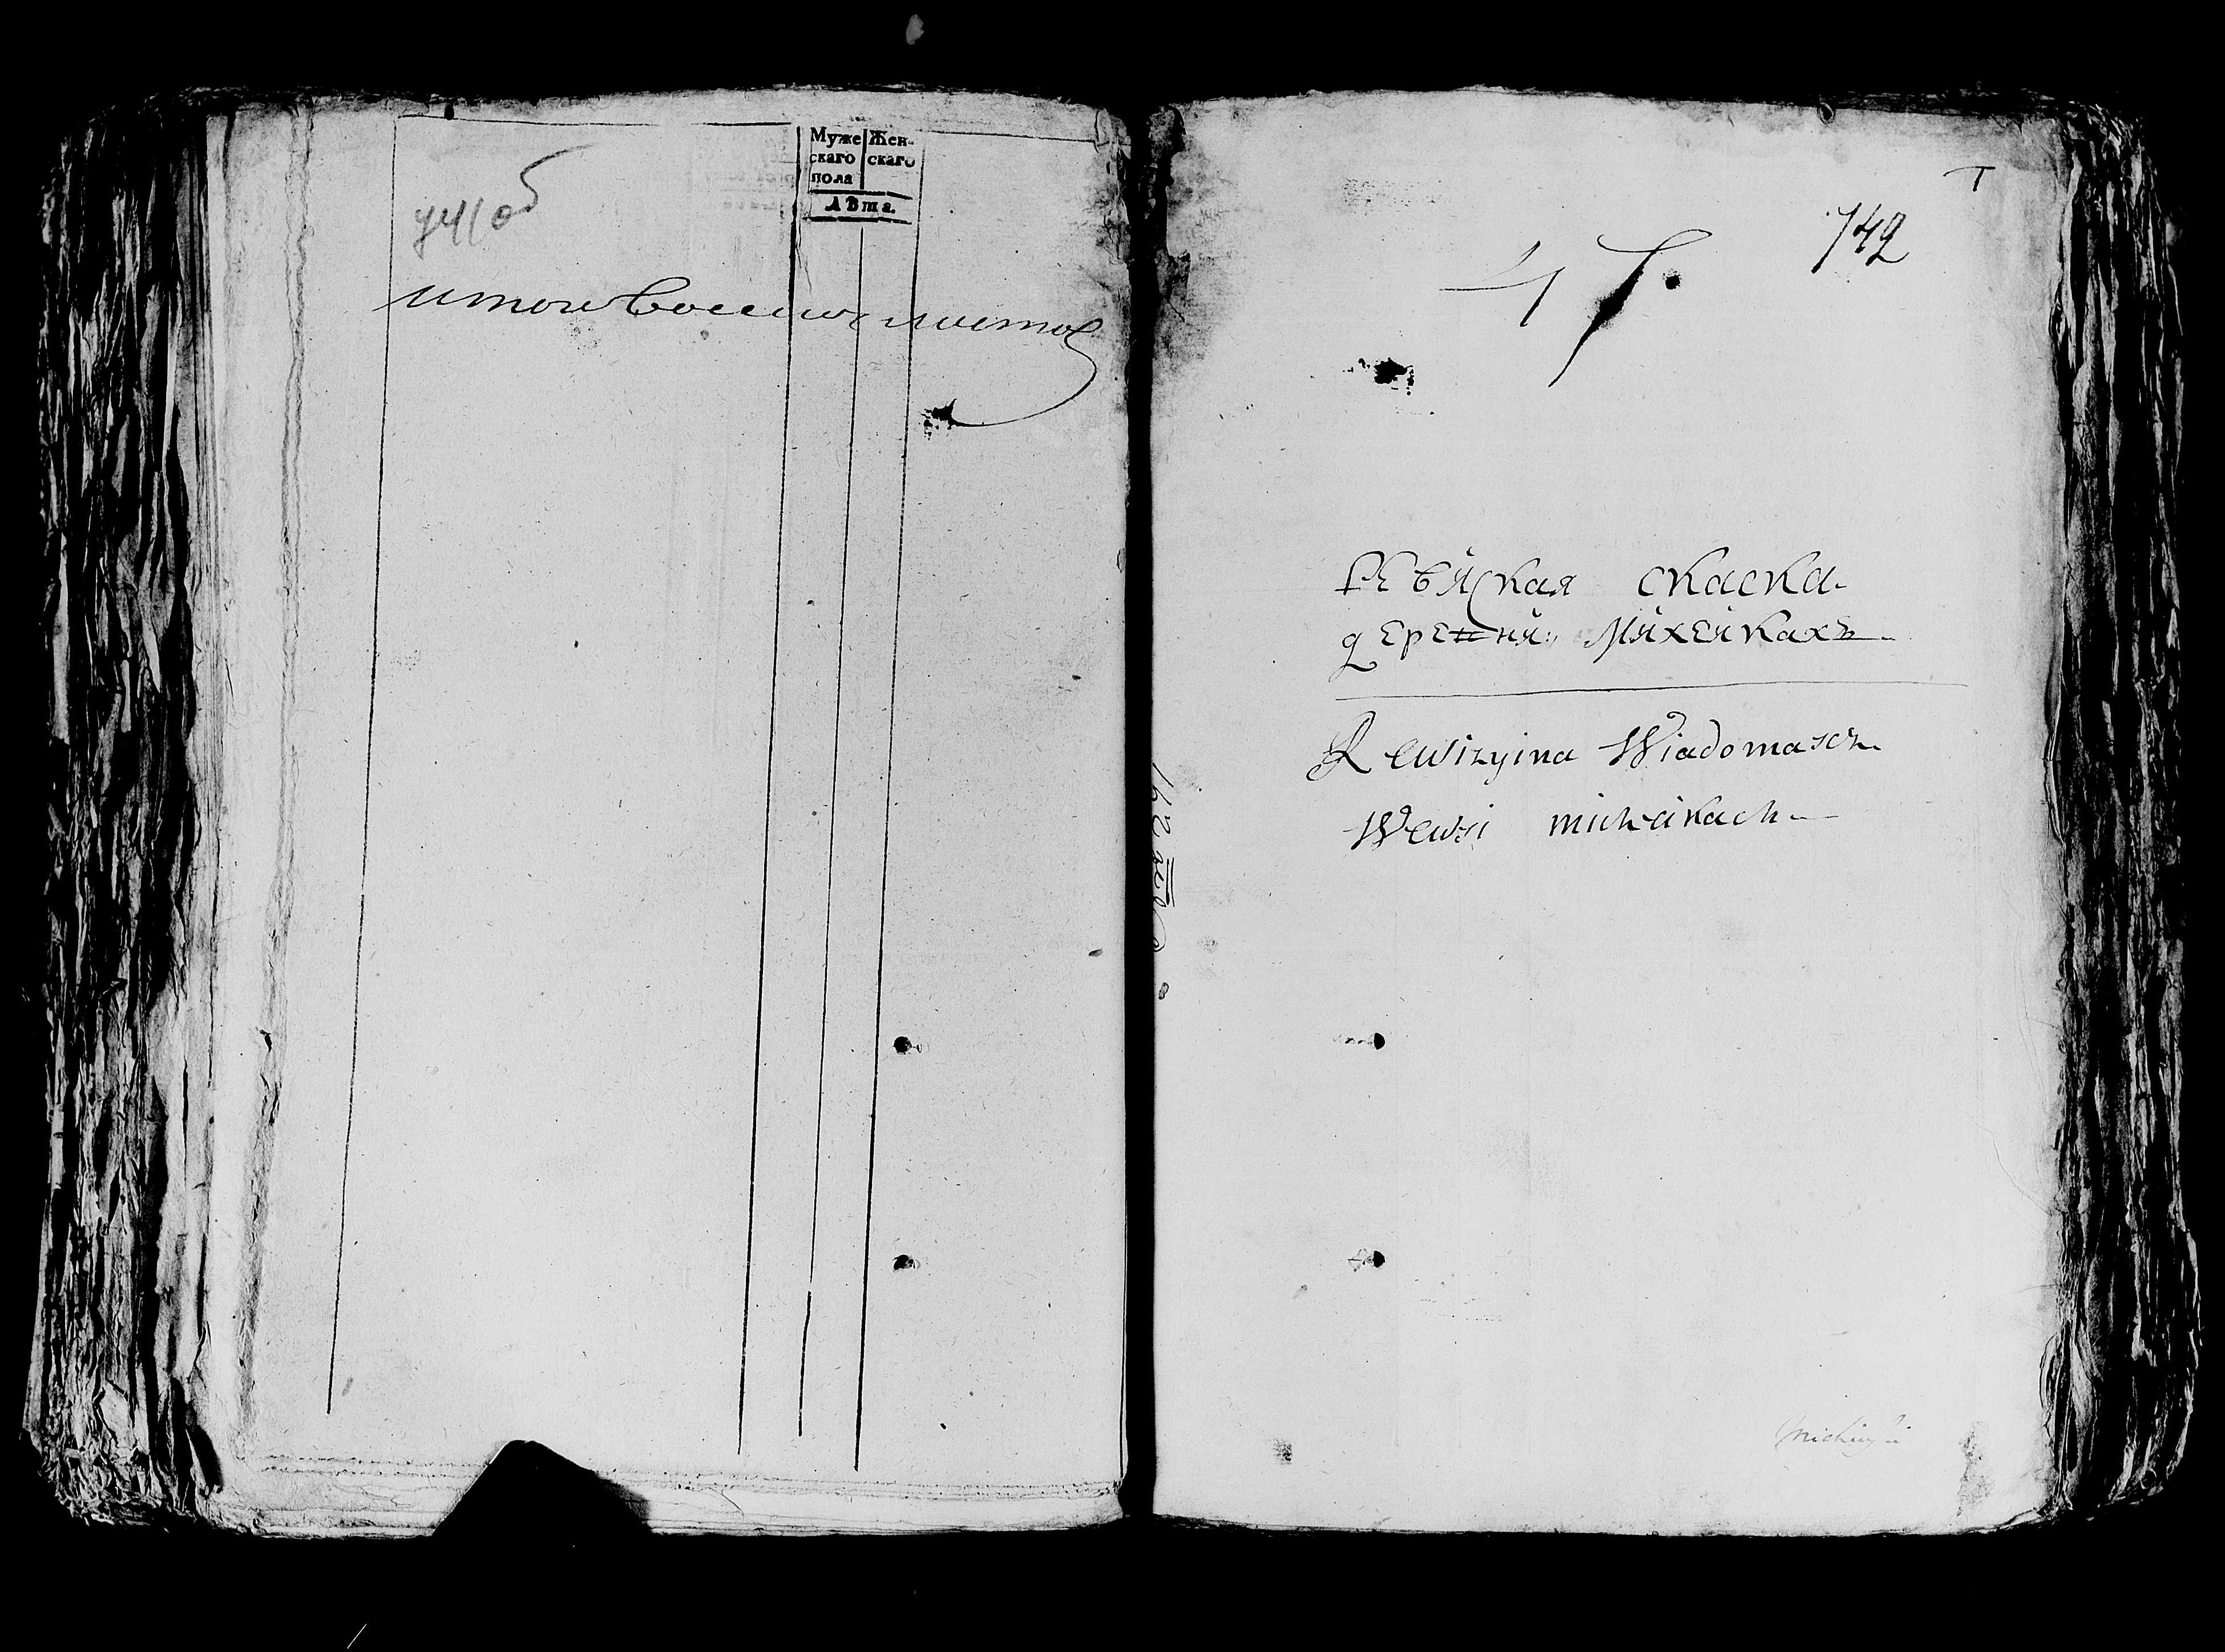 741об
Муже
скаго
пола
Жен-
скаго
лѣта.
итого восемь листов
742
Ревизская скаска
деревня: Михейках
Rewizyina Wiadomasc
Wewsi micheikach